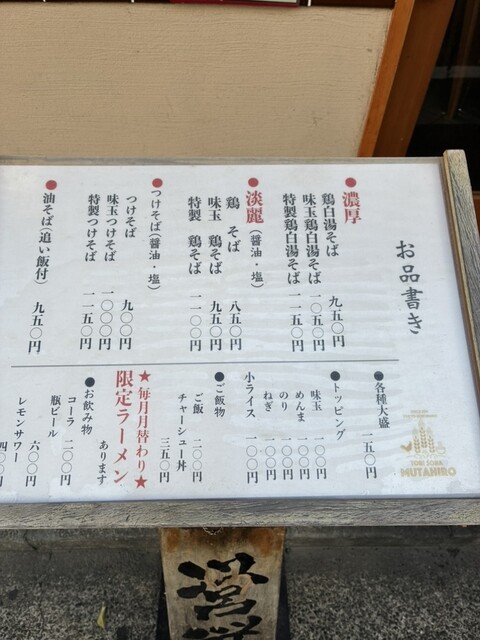 お品書き
●濃厚
鶏白湯そば 九五〇円
味玉鶏白湯そば 一〇五〇円
特製鶏白湯そば 一一五〇円
●淡麗(醤油・塩)
鶏そば 八五〇円
味玉 鶏そば 九五〇円
特製 鶏そば 一一〇〇円
●つけそば(醤油・塩)
つけそば 九〇〇円
味玉つけそば 一〇〇〇円
特製つけそば 一一五〇円
●油そば(追い飯付) 九五〇円
●各種大盛 一五〇円
●トッピング
味玉 一〇〇円
めんま 一〇〇円
のり 一〇〇円
ねぎ 一〇〇円
小ライス 一〇〇円
●ご飯物
ご飯 二〇〇円
チャーシュー丼 三五〇円
★毎月月替わり★
限定ラーメン
あります
●お飲み物
コーラ 二〇〇円
瓶ビール 六〇〇円
レモンサワー 四〇〇円
SOBI SOBA
MUTAHIRO
営業